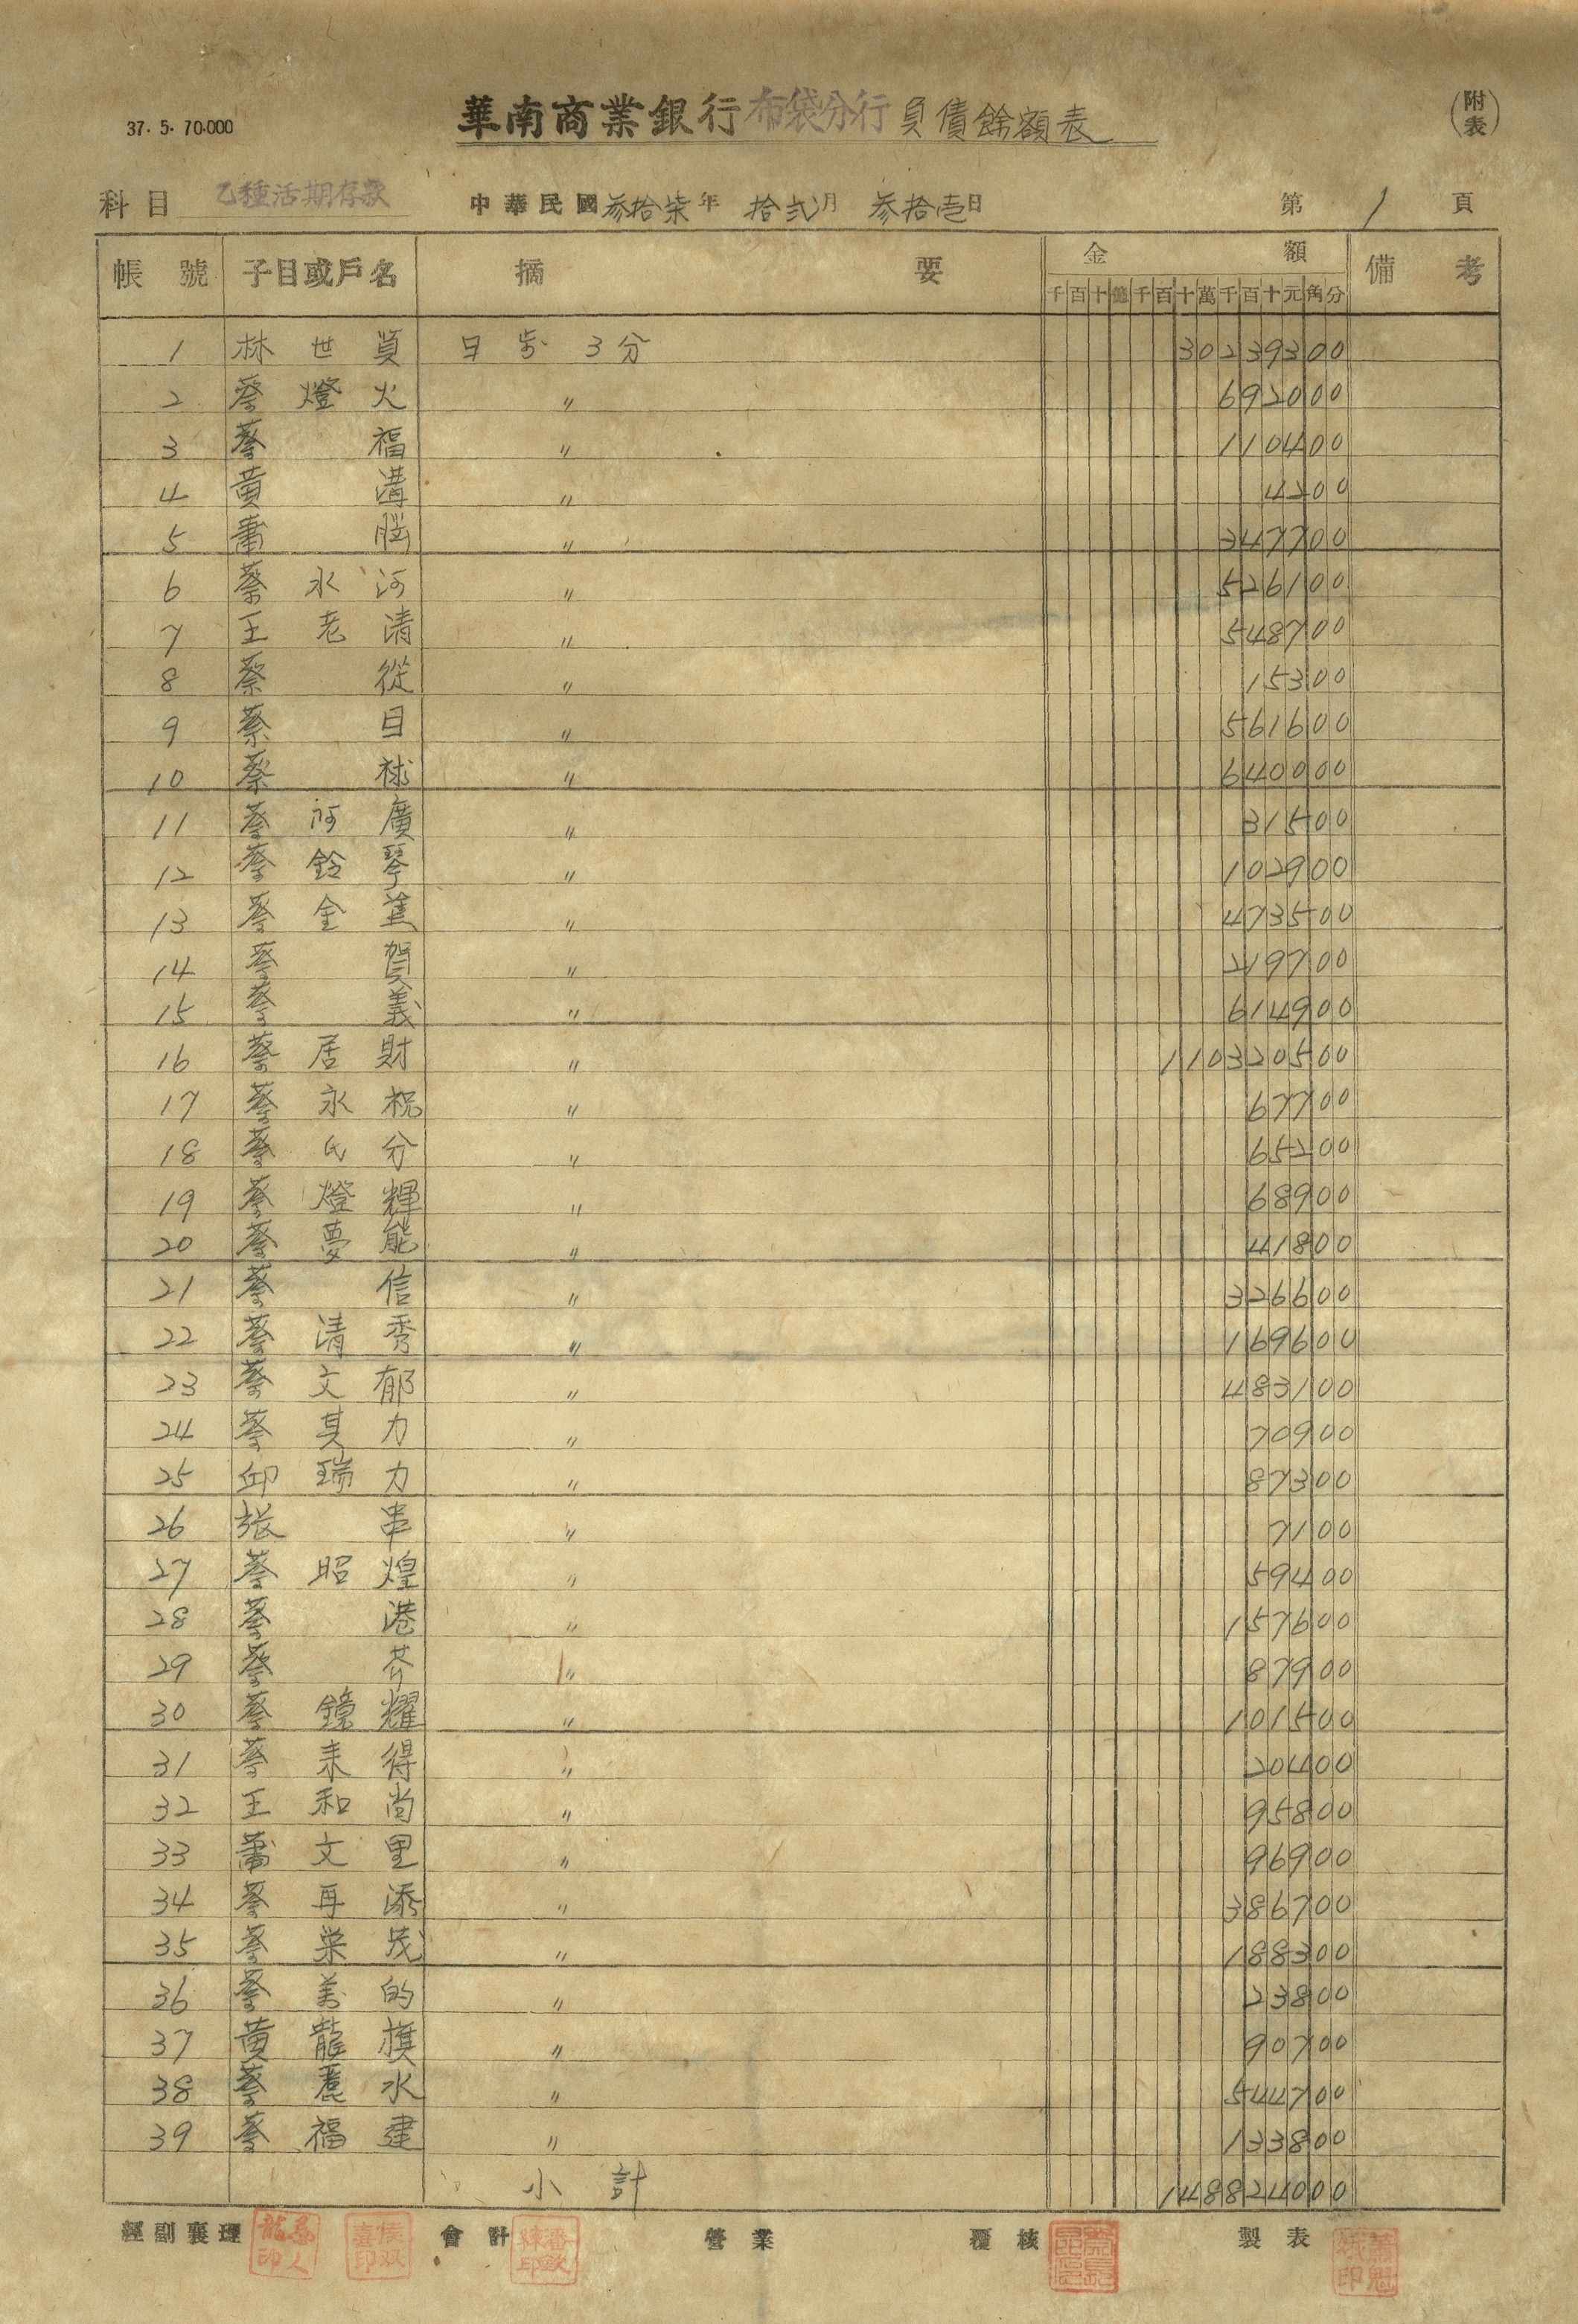 37. 5. 70.000
華南商業銀行布袋分行負債餘額表
(附表)
科目 乙種活期存款 中華民國叁拾柒年 拾弍月 叁拾壱日 第 1 頁
帳號 子目或戶名 摘要 金額 備考
千百十億千百十萬千百十元角分
1 林世員 日歩 3分 30239300
2 蔡燈火 〃 692000
3 蔡福 〃 110400
4 黃溝 〃 4200
5 蕭脳 〃 347700
6 蔡水河 〃 526100
7 王老清 〃 548700
8 蔡從 〃 15300
9 蔡目 〃 561600
10 蔡球 〃 640000
11 蔡河廣 〃 31500
12 蔡鈴琴 〃 102900
13 蔡金 〃 473500
14 蔡賀 〃 219700
15 蔡義 〃 614900
16 蔡居財 〃 110320500
17 蔡永祝 〃 67700
18 蔡氏分 〃 65200
19 蔡燈輝 〃 68900
20 蔡夢能 〃 41800
21 蔡信 〃 326600
22 蔡清秀 〃 169600
23 蔡文郁 〃 483100
24 蔡其力 〃 70900
25 邱瑞力 〃 87300
26 張串 〃 7100
27 蔡昭煌 〃 59400
28 蔡港 〃 157600
29 蔡芥 〃 87900
30 蔡鏡耀 〃 101500
31 蔡来得 〃 20400
32 王和尚 〃 95800
33 蕭文里 〃 96900
34 蔡再添 〃 386700
35 蔡栄茂 〃 188300
36 蔡美的 〃 23800
37 黃龍旗 〃 90700
38 蔡麗水 〃 544700
39 蔡福建 〃 133800
小計 148824000
經副襄理 會計 營業 覆核 製表